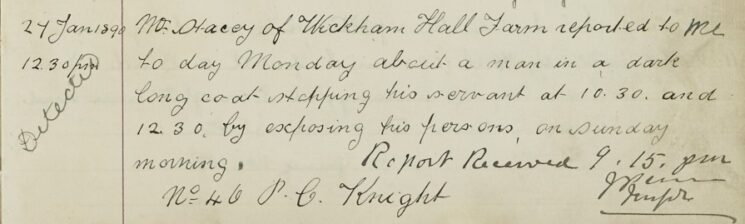 27 Jan 1890 Mr. Stacey of Wickham Hall Farm reported to me
12.30 pm to day Monday about a man in a dark
Detected long coat stopping his servant at 10.30. and
12.30. by exposing his persons, on Sunday
morning. Report Received 9.15. pm
No 46 P. C. Knight
Inspr